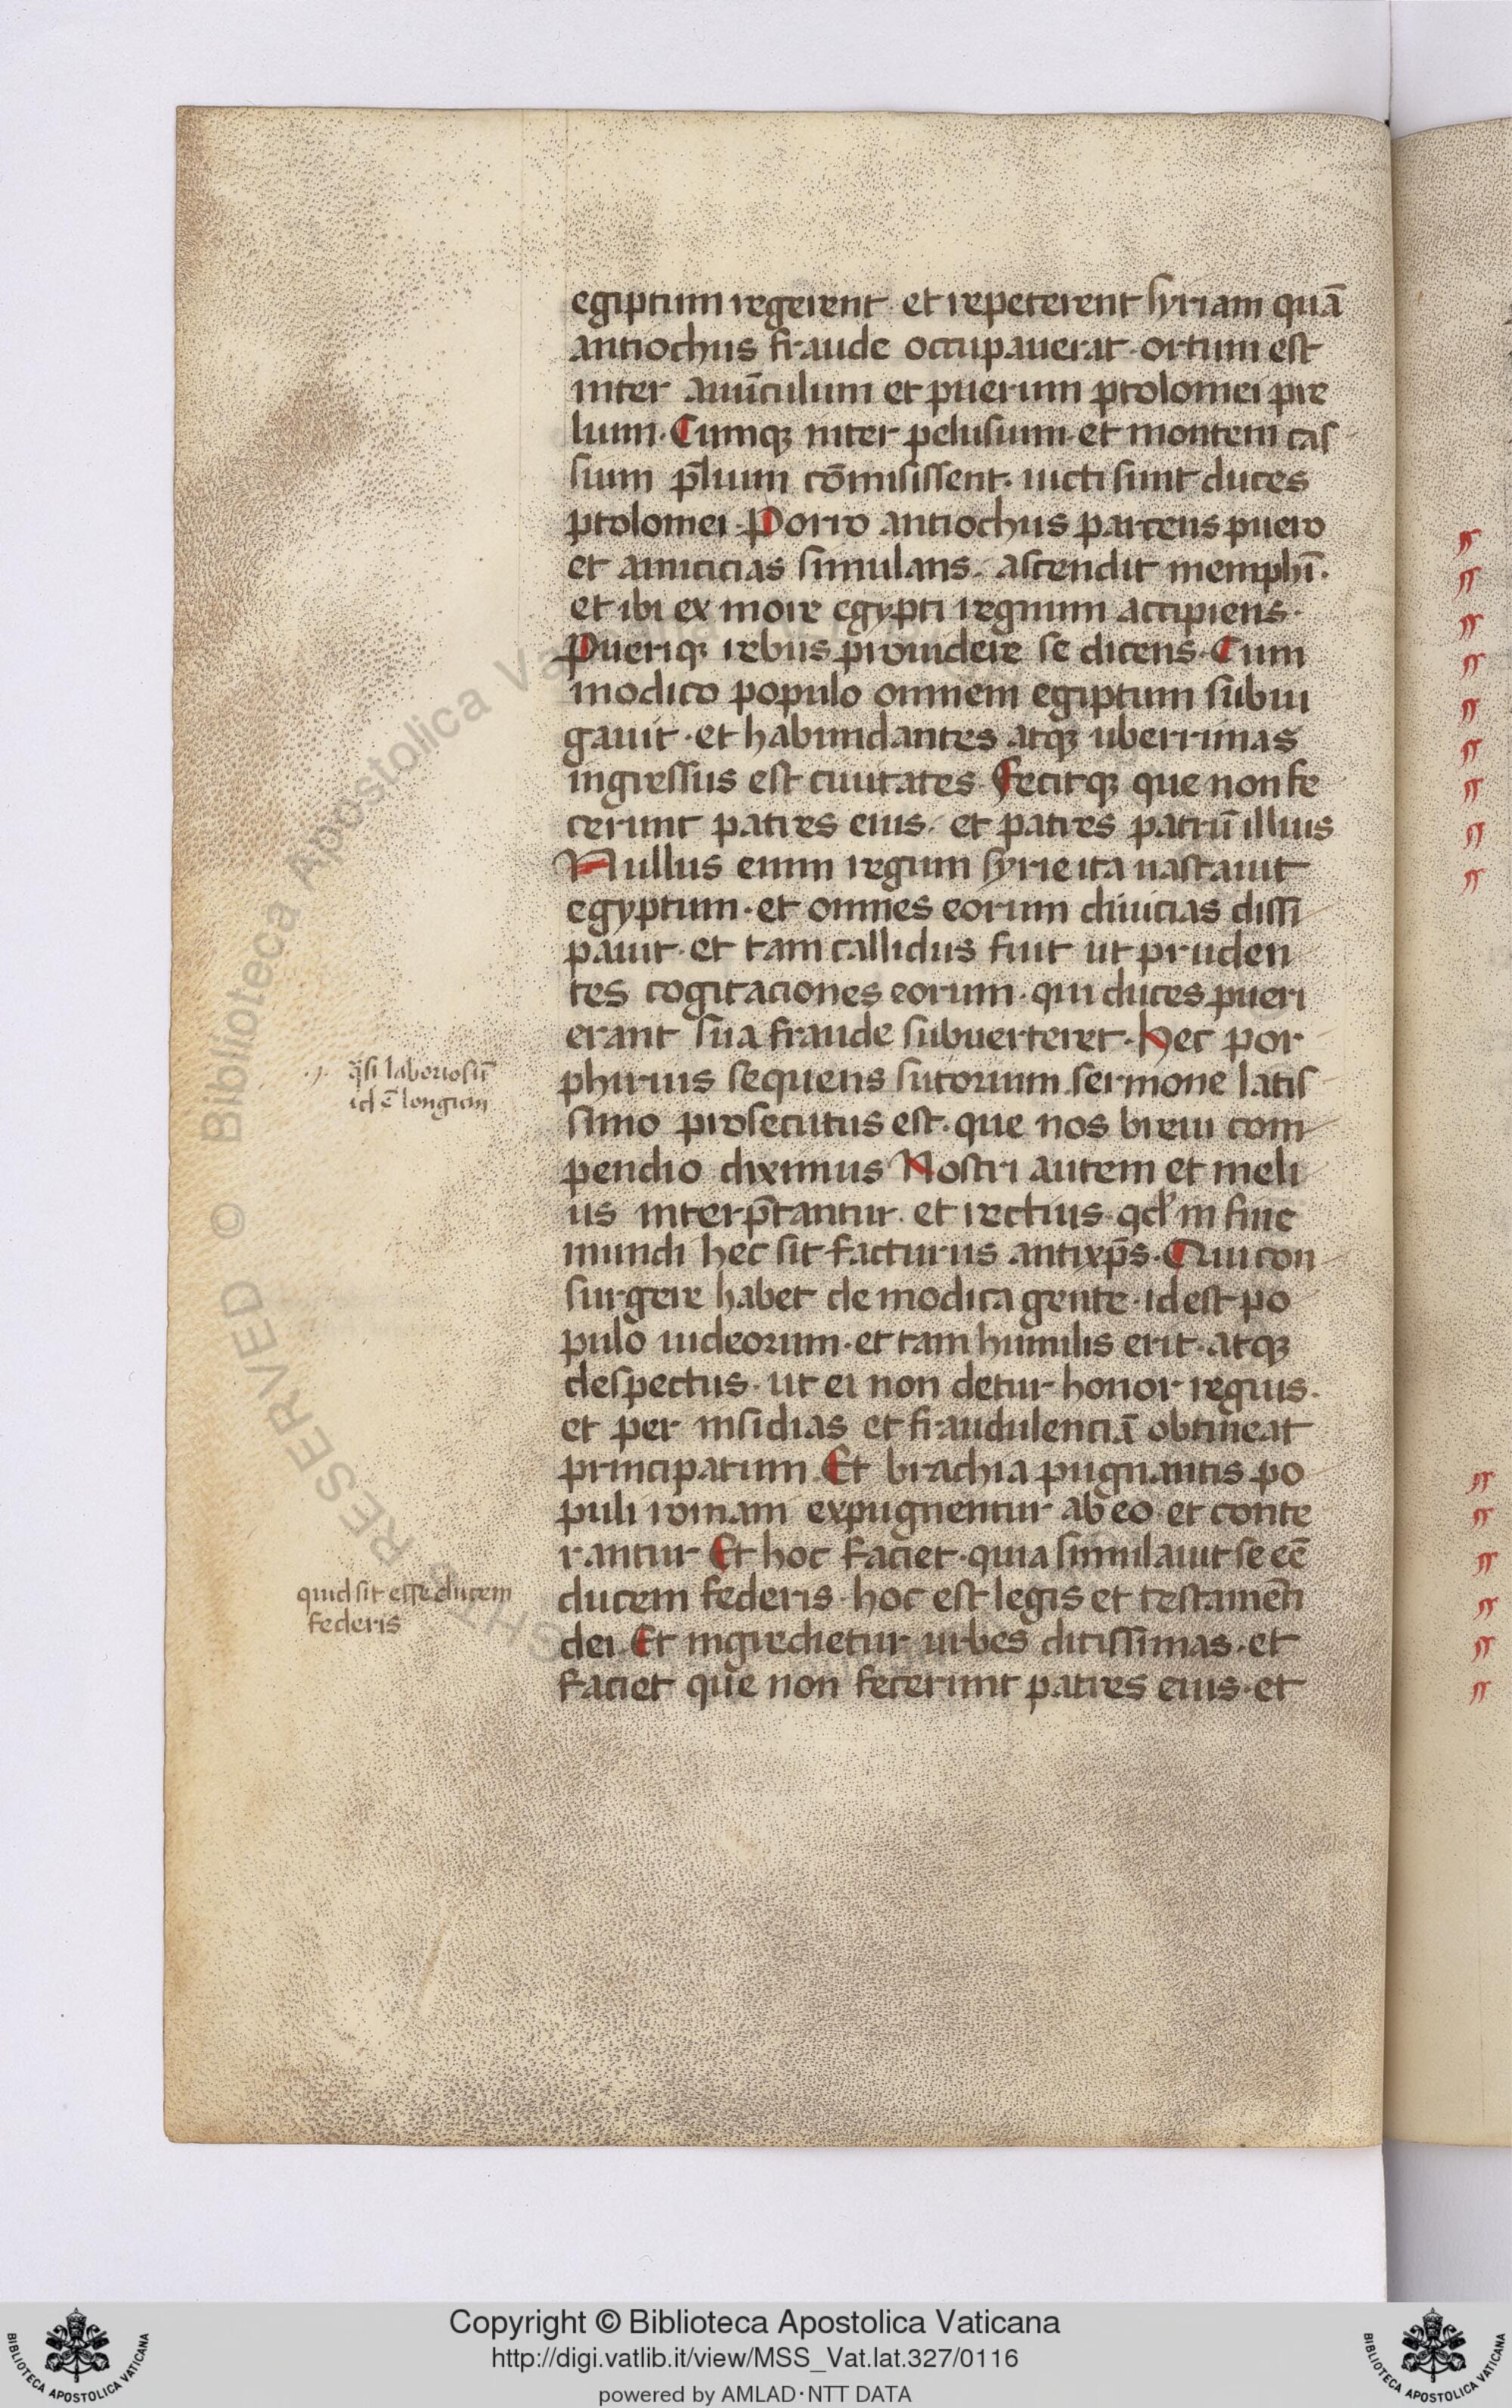 egiptum regerent · et repeterent syriam quā
antiochus fraude occupauerat · ortum est
inter auūculum et puerum ptolomei pre
lium · Cumqꝫ inter pelusium · et montem cas
sium p̄lium cōmisissent · uicti sunt duces
ptolomei · Porro antiochus parcens puero
et amicicias simulans · ascendit memphī ·
et ibi ex more egypti regnum accipiens ·
Pueriqꝫ rebus prouidere se dicens · Cum
modico populo omnem egiptum subiu
gauit · et habundantes atqꝫ uberrimas
ingressus est ciuitates · Fecitqꝫ que non fe
cerunt patres eius · et patres patrū illius
Nullus enim regum syrie ita uastauit
egyptum · et omnes eorum diuicias dissi
pauit · et tam callidus fuit ut pruden
tes cogitaciones eorum · qui duces pueri
erant sua fraude subuerteret · Hec por
q̄si laboriosū
id ē longum
phirius sequens sutorium sermone latis
simo prosecutus est · que nos breui com
pendio diximus Nostri autem et meli
us interp̄tantur · et rectius · qd' in fine
mundi hec sit facturus antixp̄s · Qui con
surgere habet de modica gente · id est po
pulo iudeorum · et tam humilis erit · atqꝫ
despectus · ut ei non detur honor regius ·
et per insidias et fraudulenciā obtineat
principatum · Et brachia pugnantis po
puli romam expugnentur ab eo · et conte
rantur Et hoc faciet · quia simulauit se eē
quid sit esse ducem
federis
ducem federis · hoc est legis et testamēti
dei · Et ingredietur urbes ditissimas · et
faciet que non fecerunt patres eius · et
Biblioteca Apostolica Vaticana
Copyright © Biblioteca Apostolica Vaticana
http://digi.vatlib.it/view/MSS_Vat.lat.327/0116
powered by AMLAD·NTT DATA
BIBLIOTECA APOSTOLICA VATICANA
BIBLIOTECA APOSTOLICA VATICANA